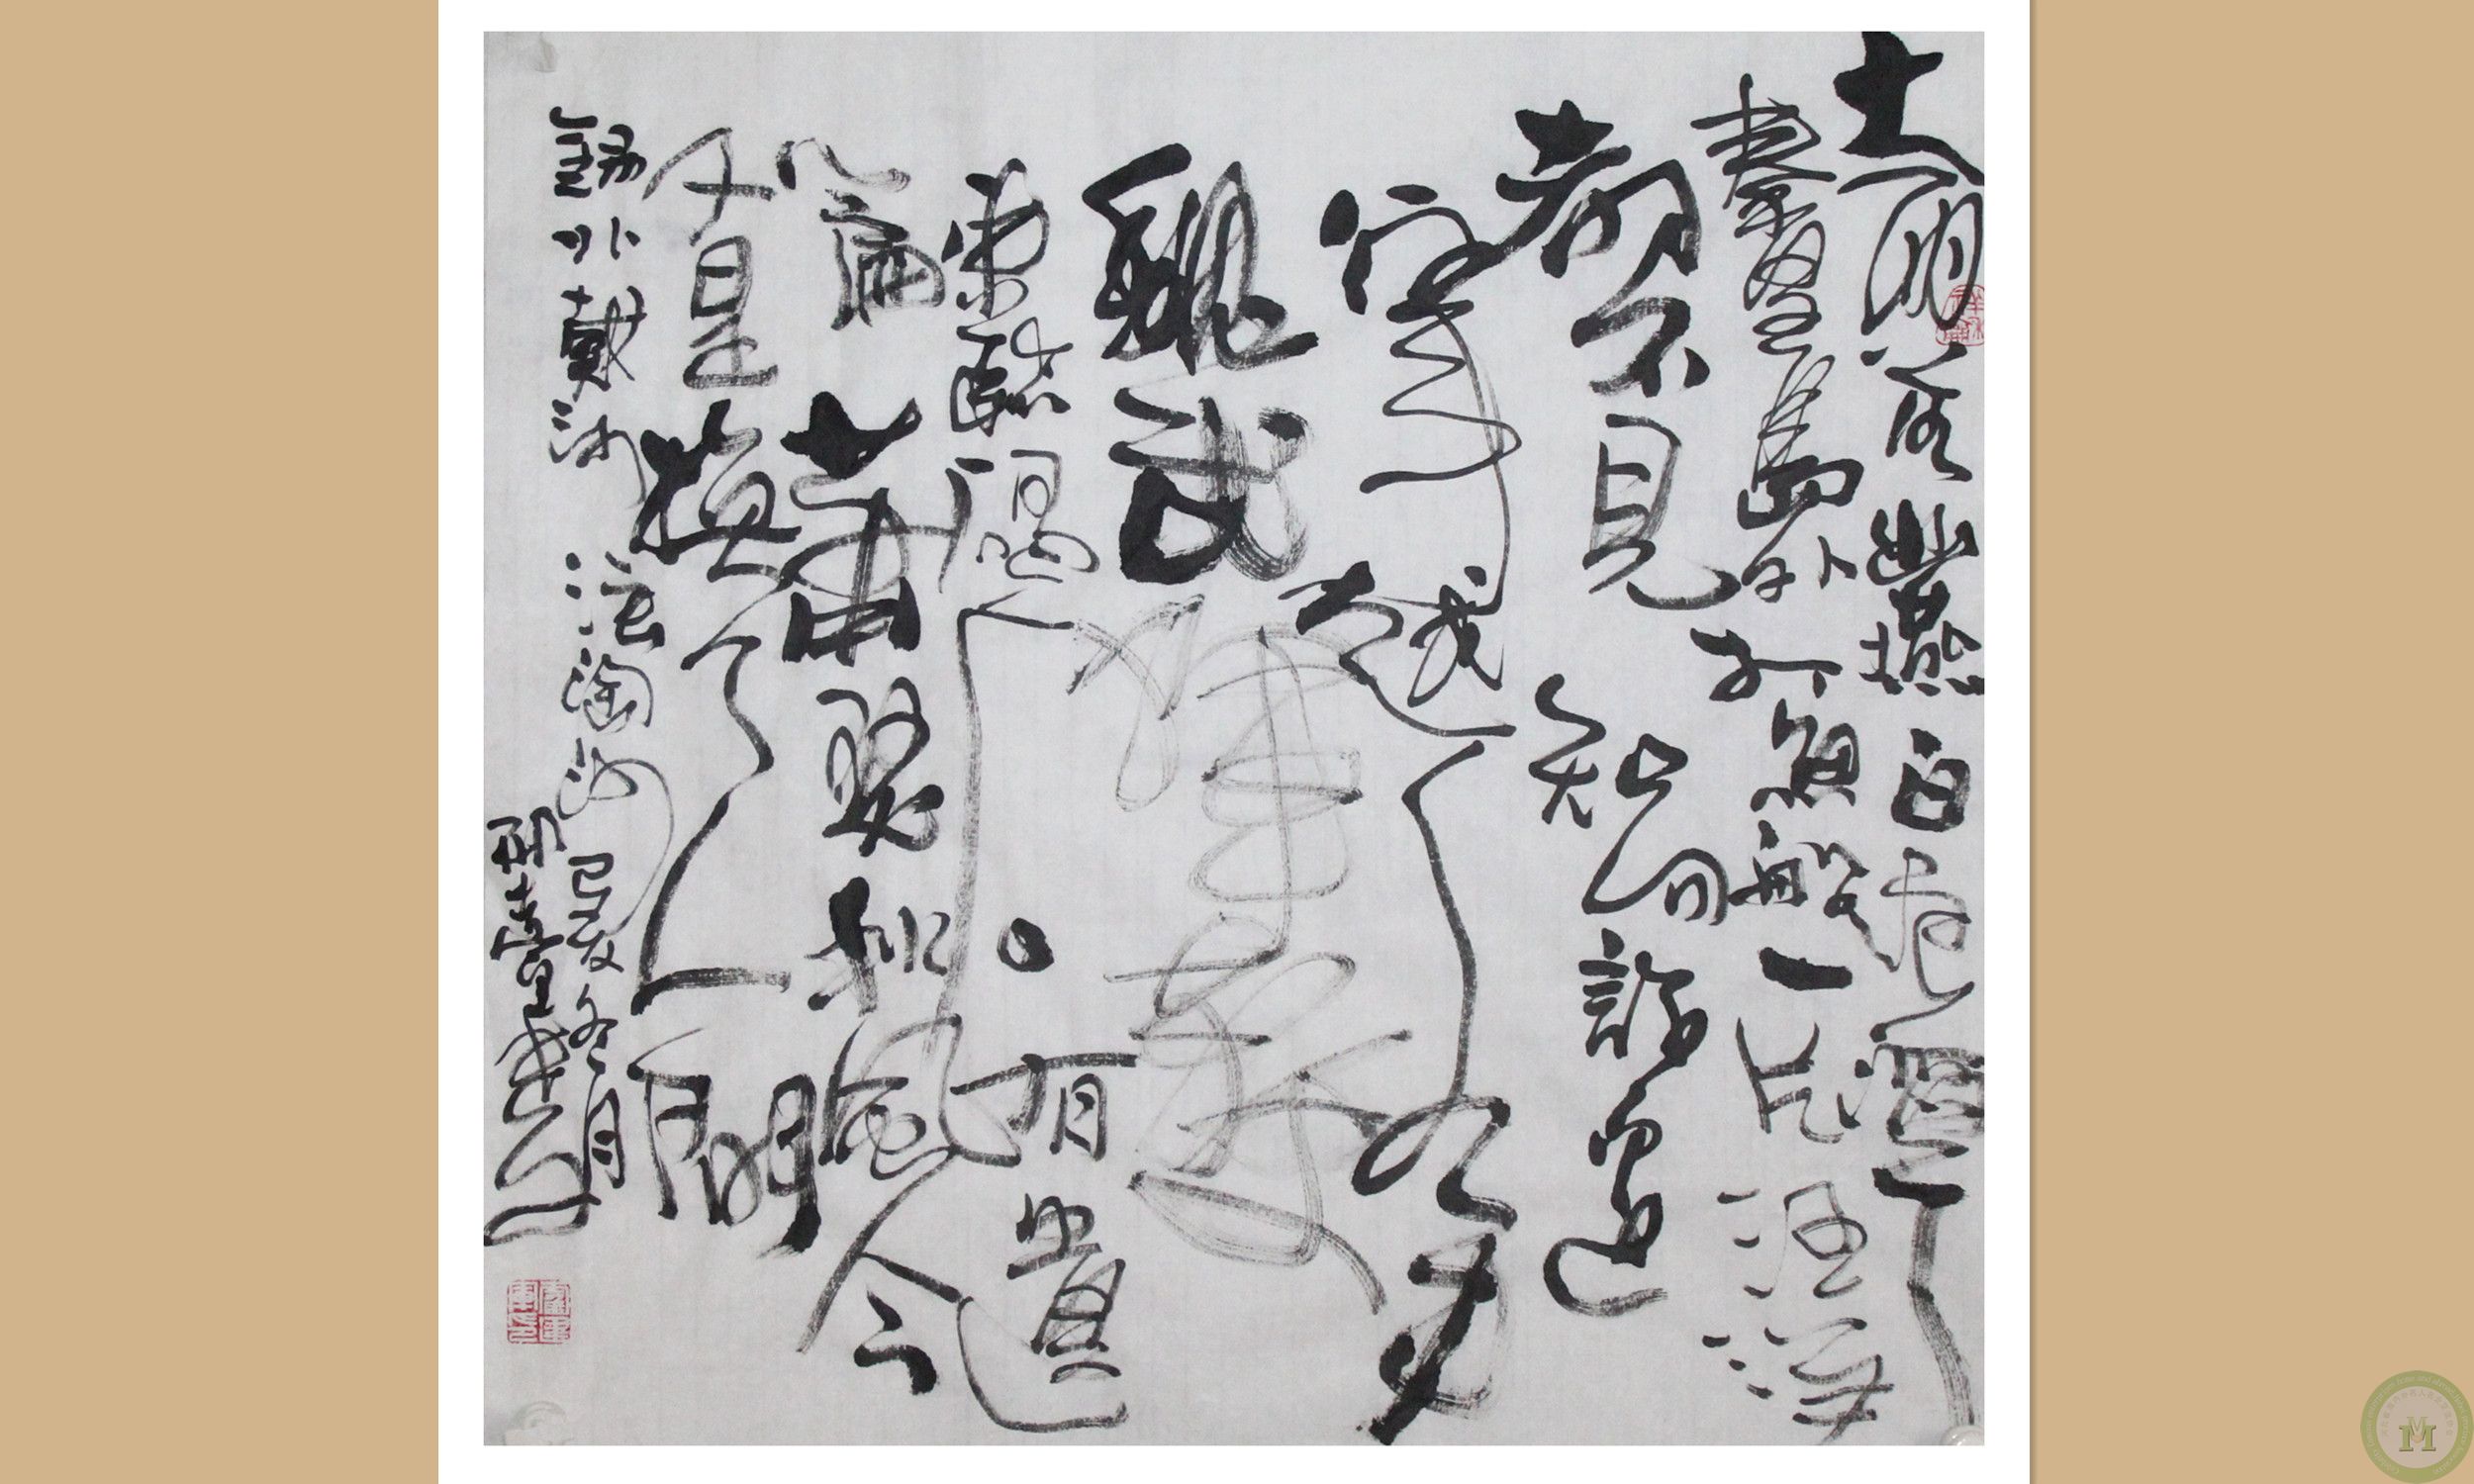 大雨落幽燕白浪滔天
秦皇島外打魚船一片汪洋
都不見知向誰邊
往事越千年
魏武揮鞭
東臨碣石有遺
篇蕭瑟秋風今
又是換了人間
錄北戴河浪淘沙己亥冬月